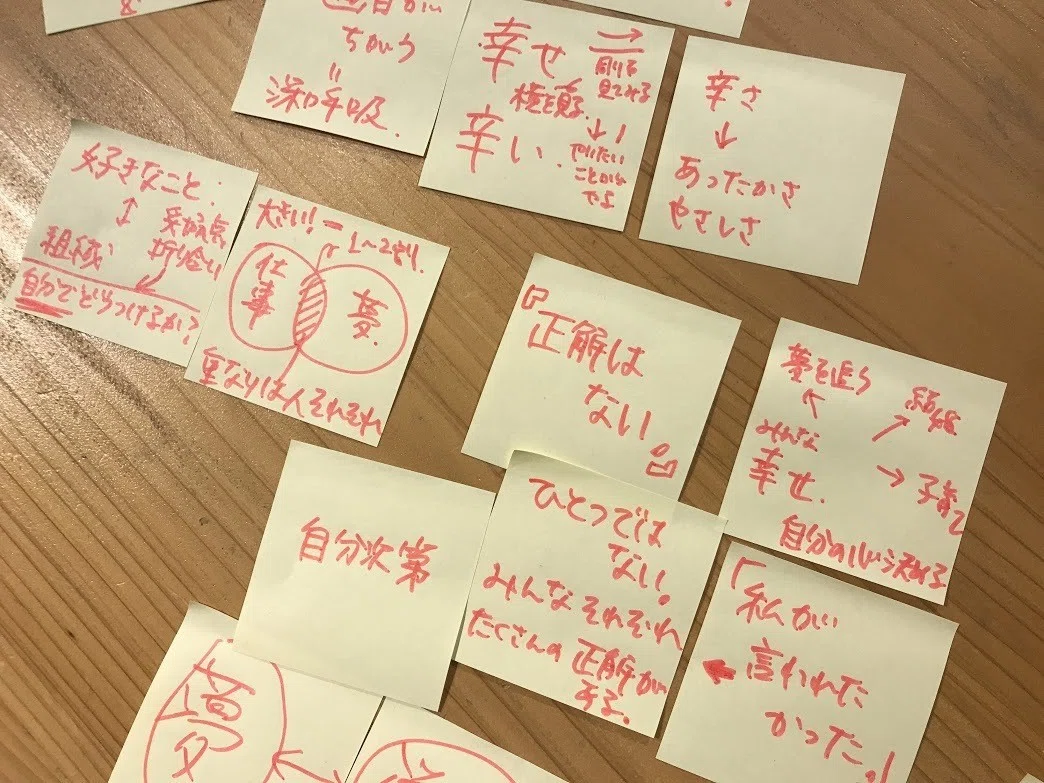 ちがう
=
深呼吸.
幸せ
→
横を見る.
見てみる
辛い.
↓
やりたい
ことがで
辛さ
↓
あったかさ
やさしさ
好きなこと.
↕
組織
折り合い
自分でどうつけるか?
大きい!
1〜2ミリ.
仕事
夢.
重なりは人それぞれ
『正解は
ない。』
夢を追う
結婚
みんな
幸せ.
→ 子育て
自分の心が決める
自分次第
ひとつでは
ない。
みんなそれぞれ
たくさんの正解が
ある。
「私が
言われた
かった。」
夢